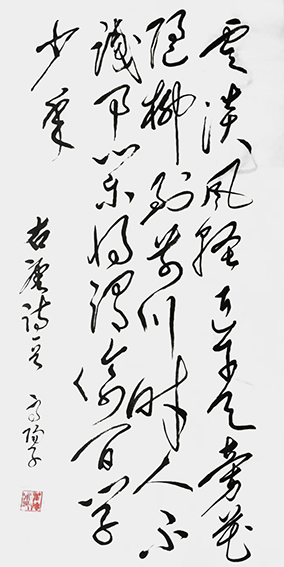 雲淡風軽近午天旁花
隨柳到前川時人不
識予心樂將謂偷閒學
少年
詩一首